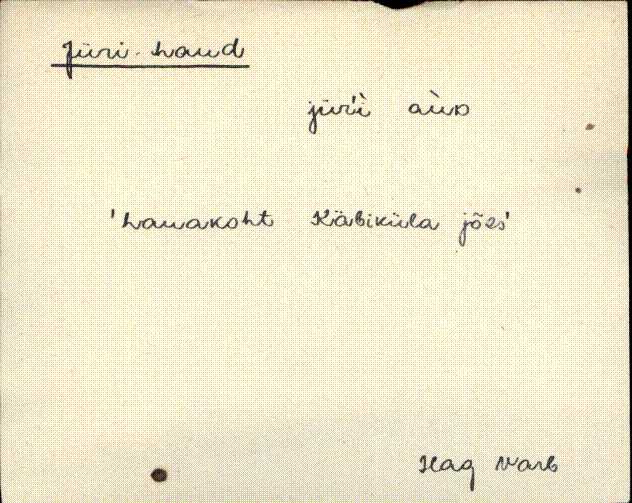 Jüri-haud
jürì̬ àùᴅ
'hauakoht Käbiküla jões'
Hag Varb